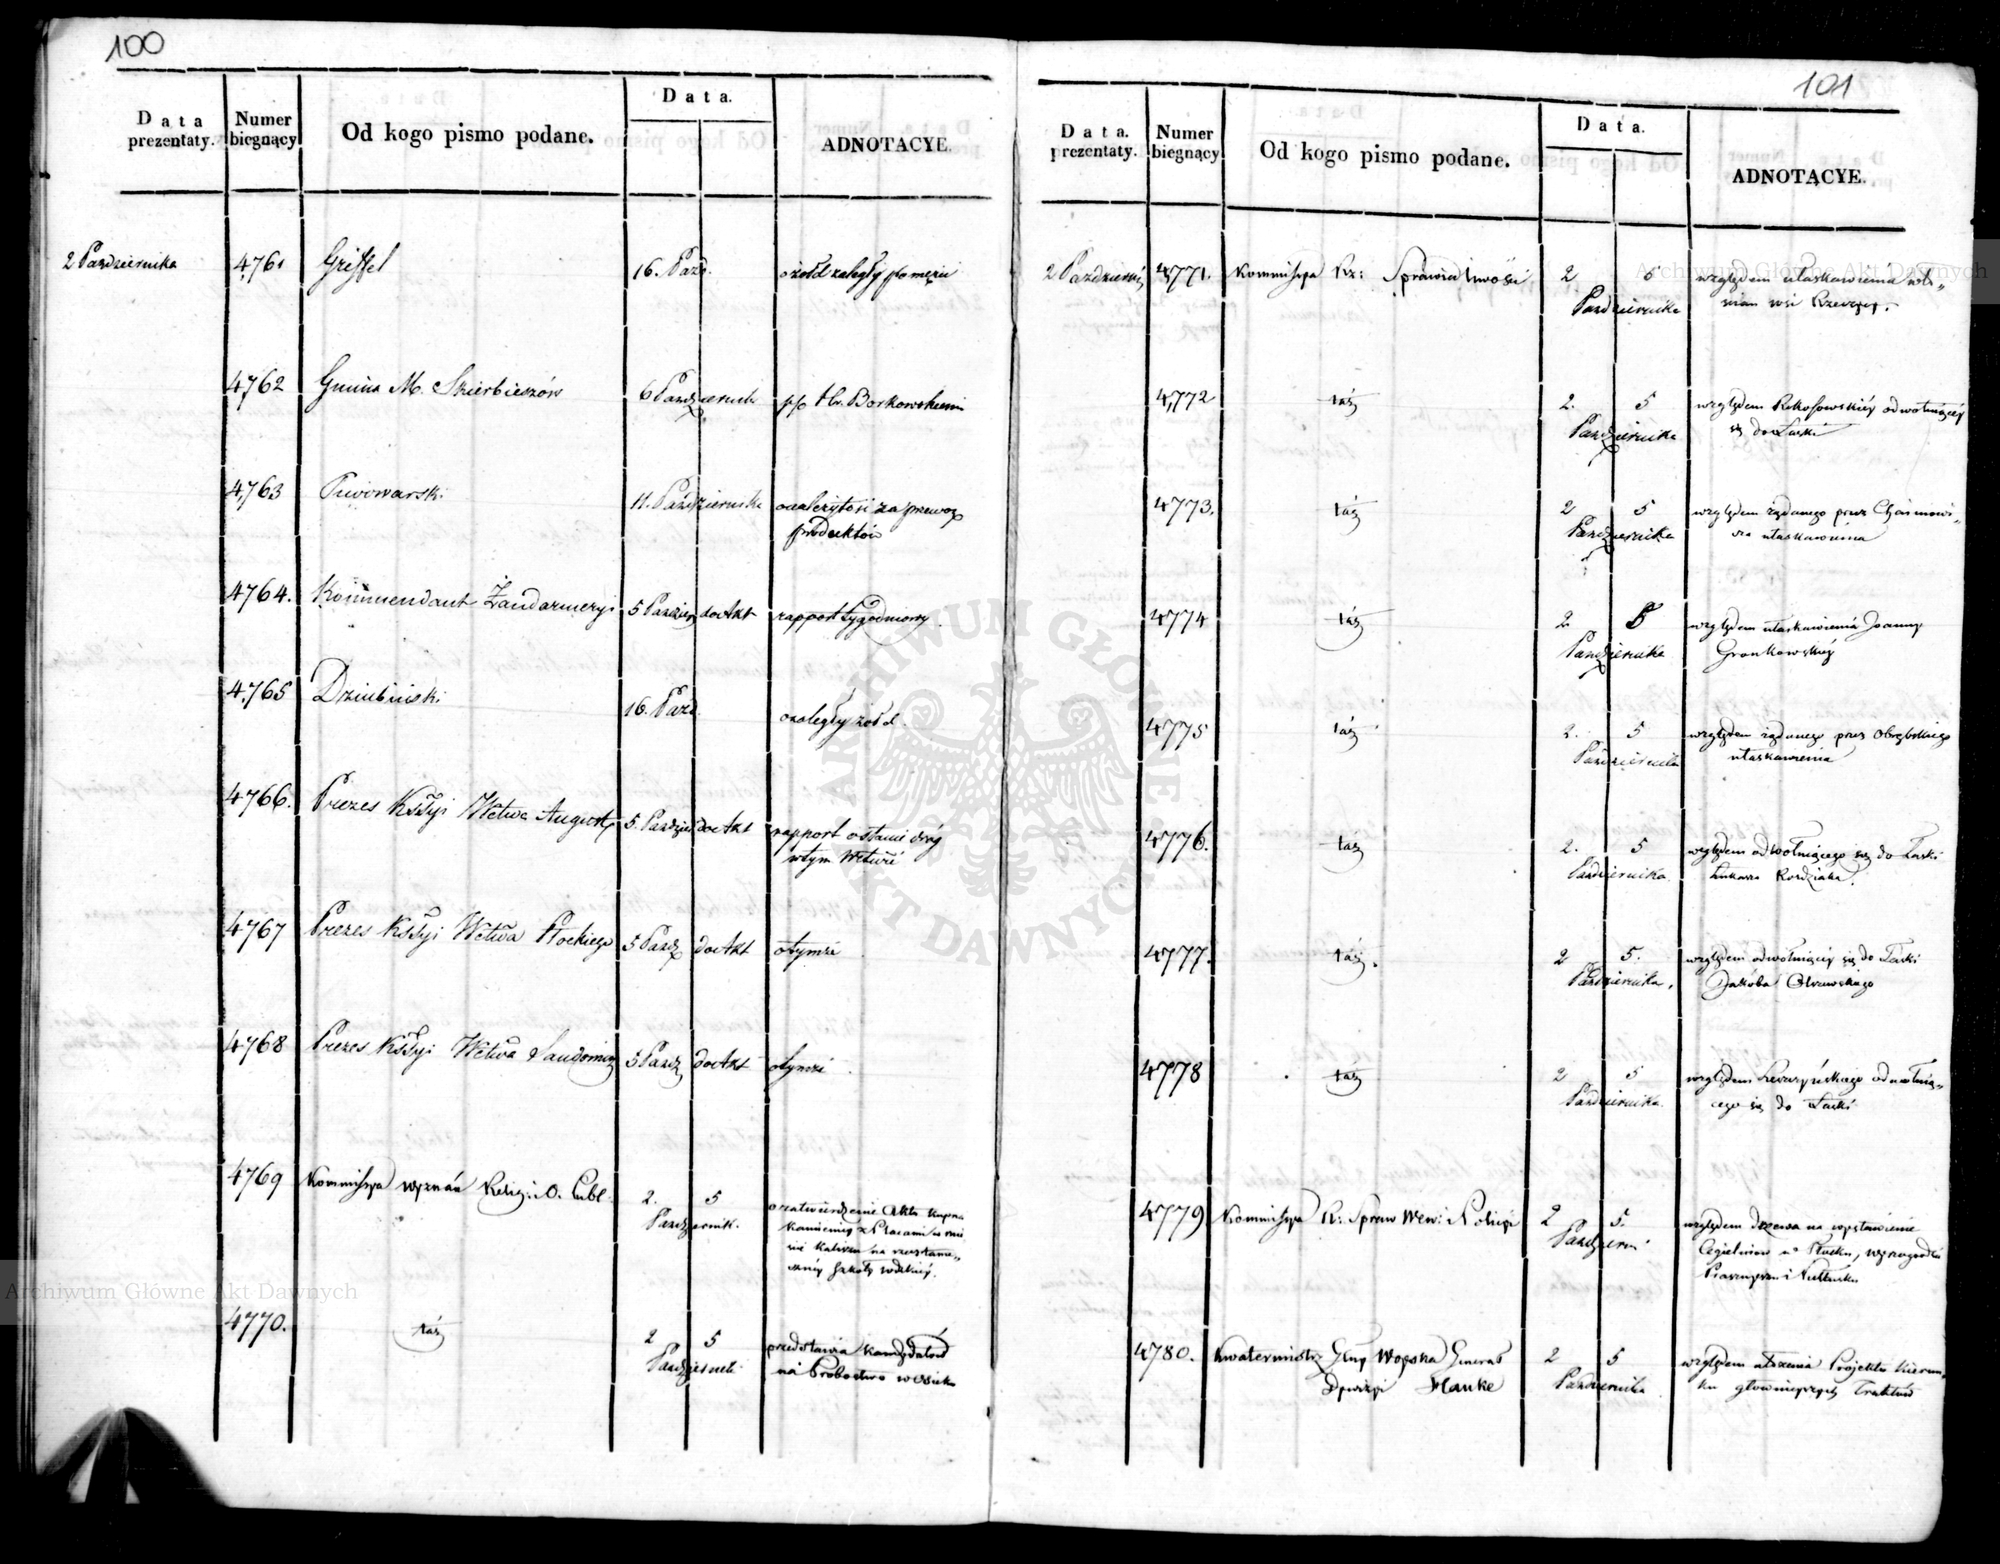 100
Data prezentaty.
Numer biegnący
Od kogo pismo podane.
Data.
ADNOTACYE.
2 Października 4761 Griffel 16. Paźd. o żołd zaległy po mężu
4762 Gmina M. Skierbieszów 6 Październik p/o Hr. Borkowskiemu
4763 Piwowarski 11. Październka o należytość za przewoz
produktów
4764. Kommendant Żandarmeryi 5 Paździer do Akt rapport tygodniowy.
4765 Dziubiński 16. Paźd. o zaległy żołd.
4766. Prezes Kssyi Wctwa August. 5. Paździer do Akt rapport o stanie dróg
w tym Wctwie
4767 Prezes Kssyi Wctwa Płockiego 5 Paźdz do Akt o tymże
4768 Prezes Kssyi Wctwa Sandomir 5 Paźdz do Akt o tymże
4769 Kommissya wyznań Relig: i O. Publ. 2. 5
Październik.
o zatwierdzenie Aktu kupna
kamienicy z placami w mie
ście Kaliszu na
Szkoły wdzkiey.
4770. táż 2 5
Październik
przedstawia kandydatów
na Probostwo
101
Data. prezentaty.
Numer biegnący
Od kogo pismo podane.
Data.
ADNOTACYE.
2 Październik 4771. Kommissya Rz: Sprawiedliwości 2 5
Października
względem ułaskawienia wło„
ścian wsi
4772 táż 2. 5
Października
względem Rokossowskiéy odwołuiącéy
się do Łaski
4773. táż 2 5
Października
względem żądanego przez
ułaskawienia
4774 táż 2 5
Października
względem ułaskawienia Joanny
Gronkowskiéy
4775 táż 2. 5
Października
względem żądanego przez Obrębskiego
ułaskawienia
4776. táż 2. 5
Października
względem odwołuiącego się do Łaski
Łukasza Koździaka.
4777. táż. 2 5.
Października.
względem odwołuiącéy się do Łaski
Jakóba Olszewskiego
4778 táż 2 5
Października.
względem odwołuią„
cego się do Łaski
4779 Kommissya R: Spraw Wew: i Policyi 2 5.
Październi
względem drzewa na wystawienie
Cegielniow w Płocku, Wyszogrodzie
Przasnyszu i Pułtusku
4780. Kwatermistrz Głny Woyska Generał
Dywizyi Hauke
2 5
Października
względem ułożenia Projektu kierun„
ku głównieyszych Traktów
Archiwum Główne Akt Dawnych
Archiwum Główne Akt Dawnych
ARCHIWUM GŁÓWNE AKT DAWNYCH